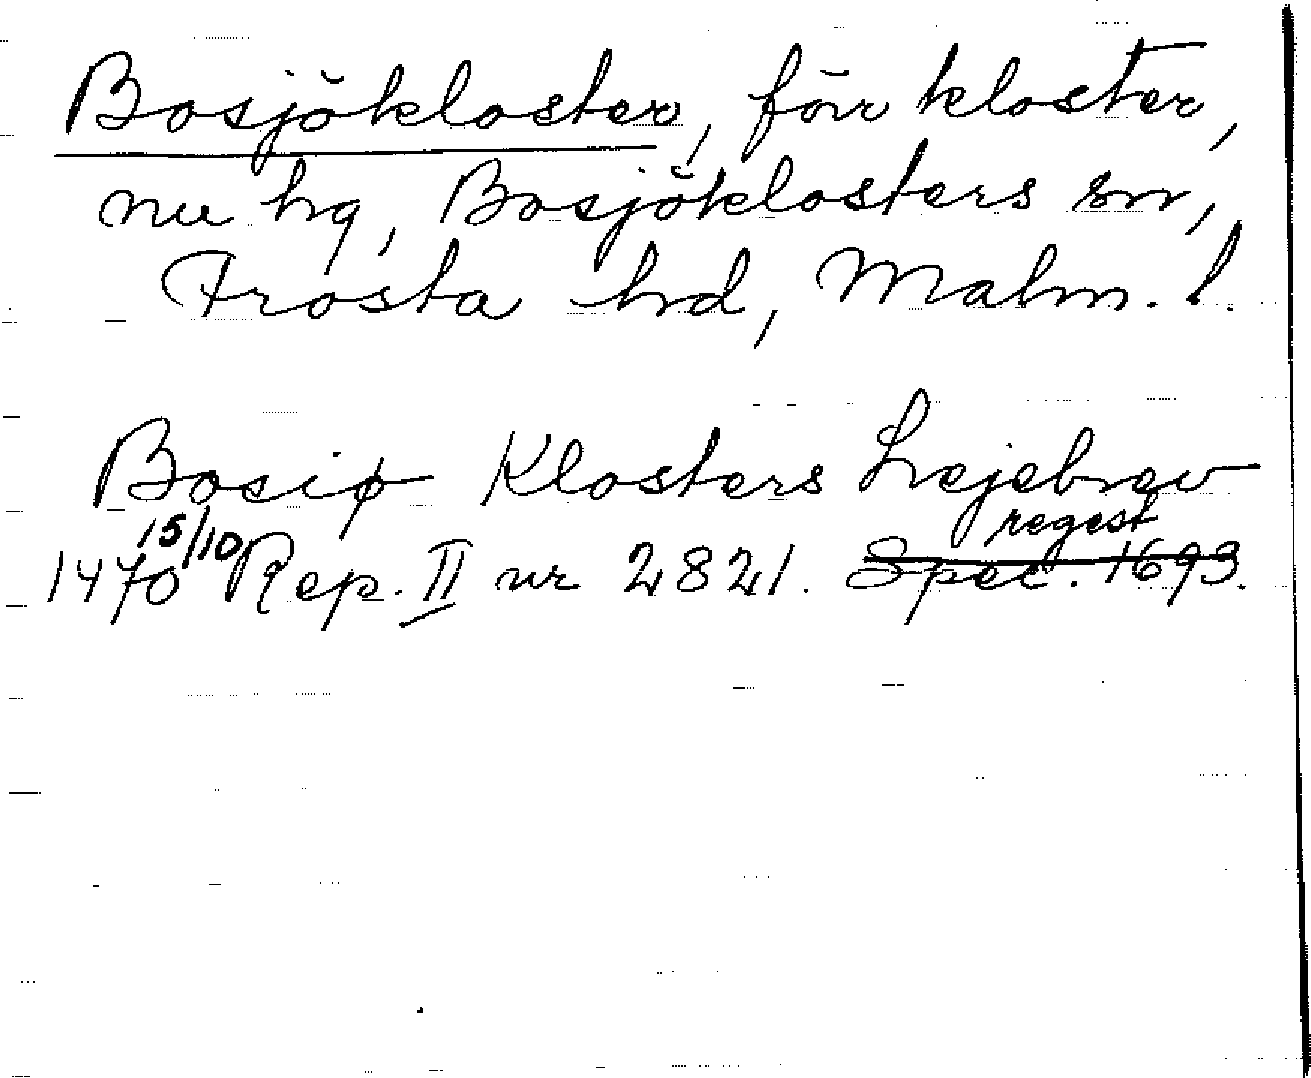 Bosjökloster, förr kloster,
nu hg, Bosjöklosters sn,
Frosta hd, Malm. l.
Bosiø Klosters Lejebrev
1470 15/10 Rep. II nr 2821. regest Spec. 1693.